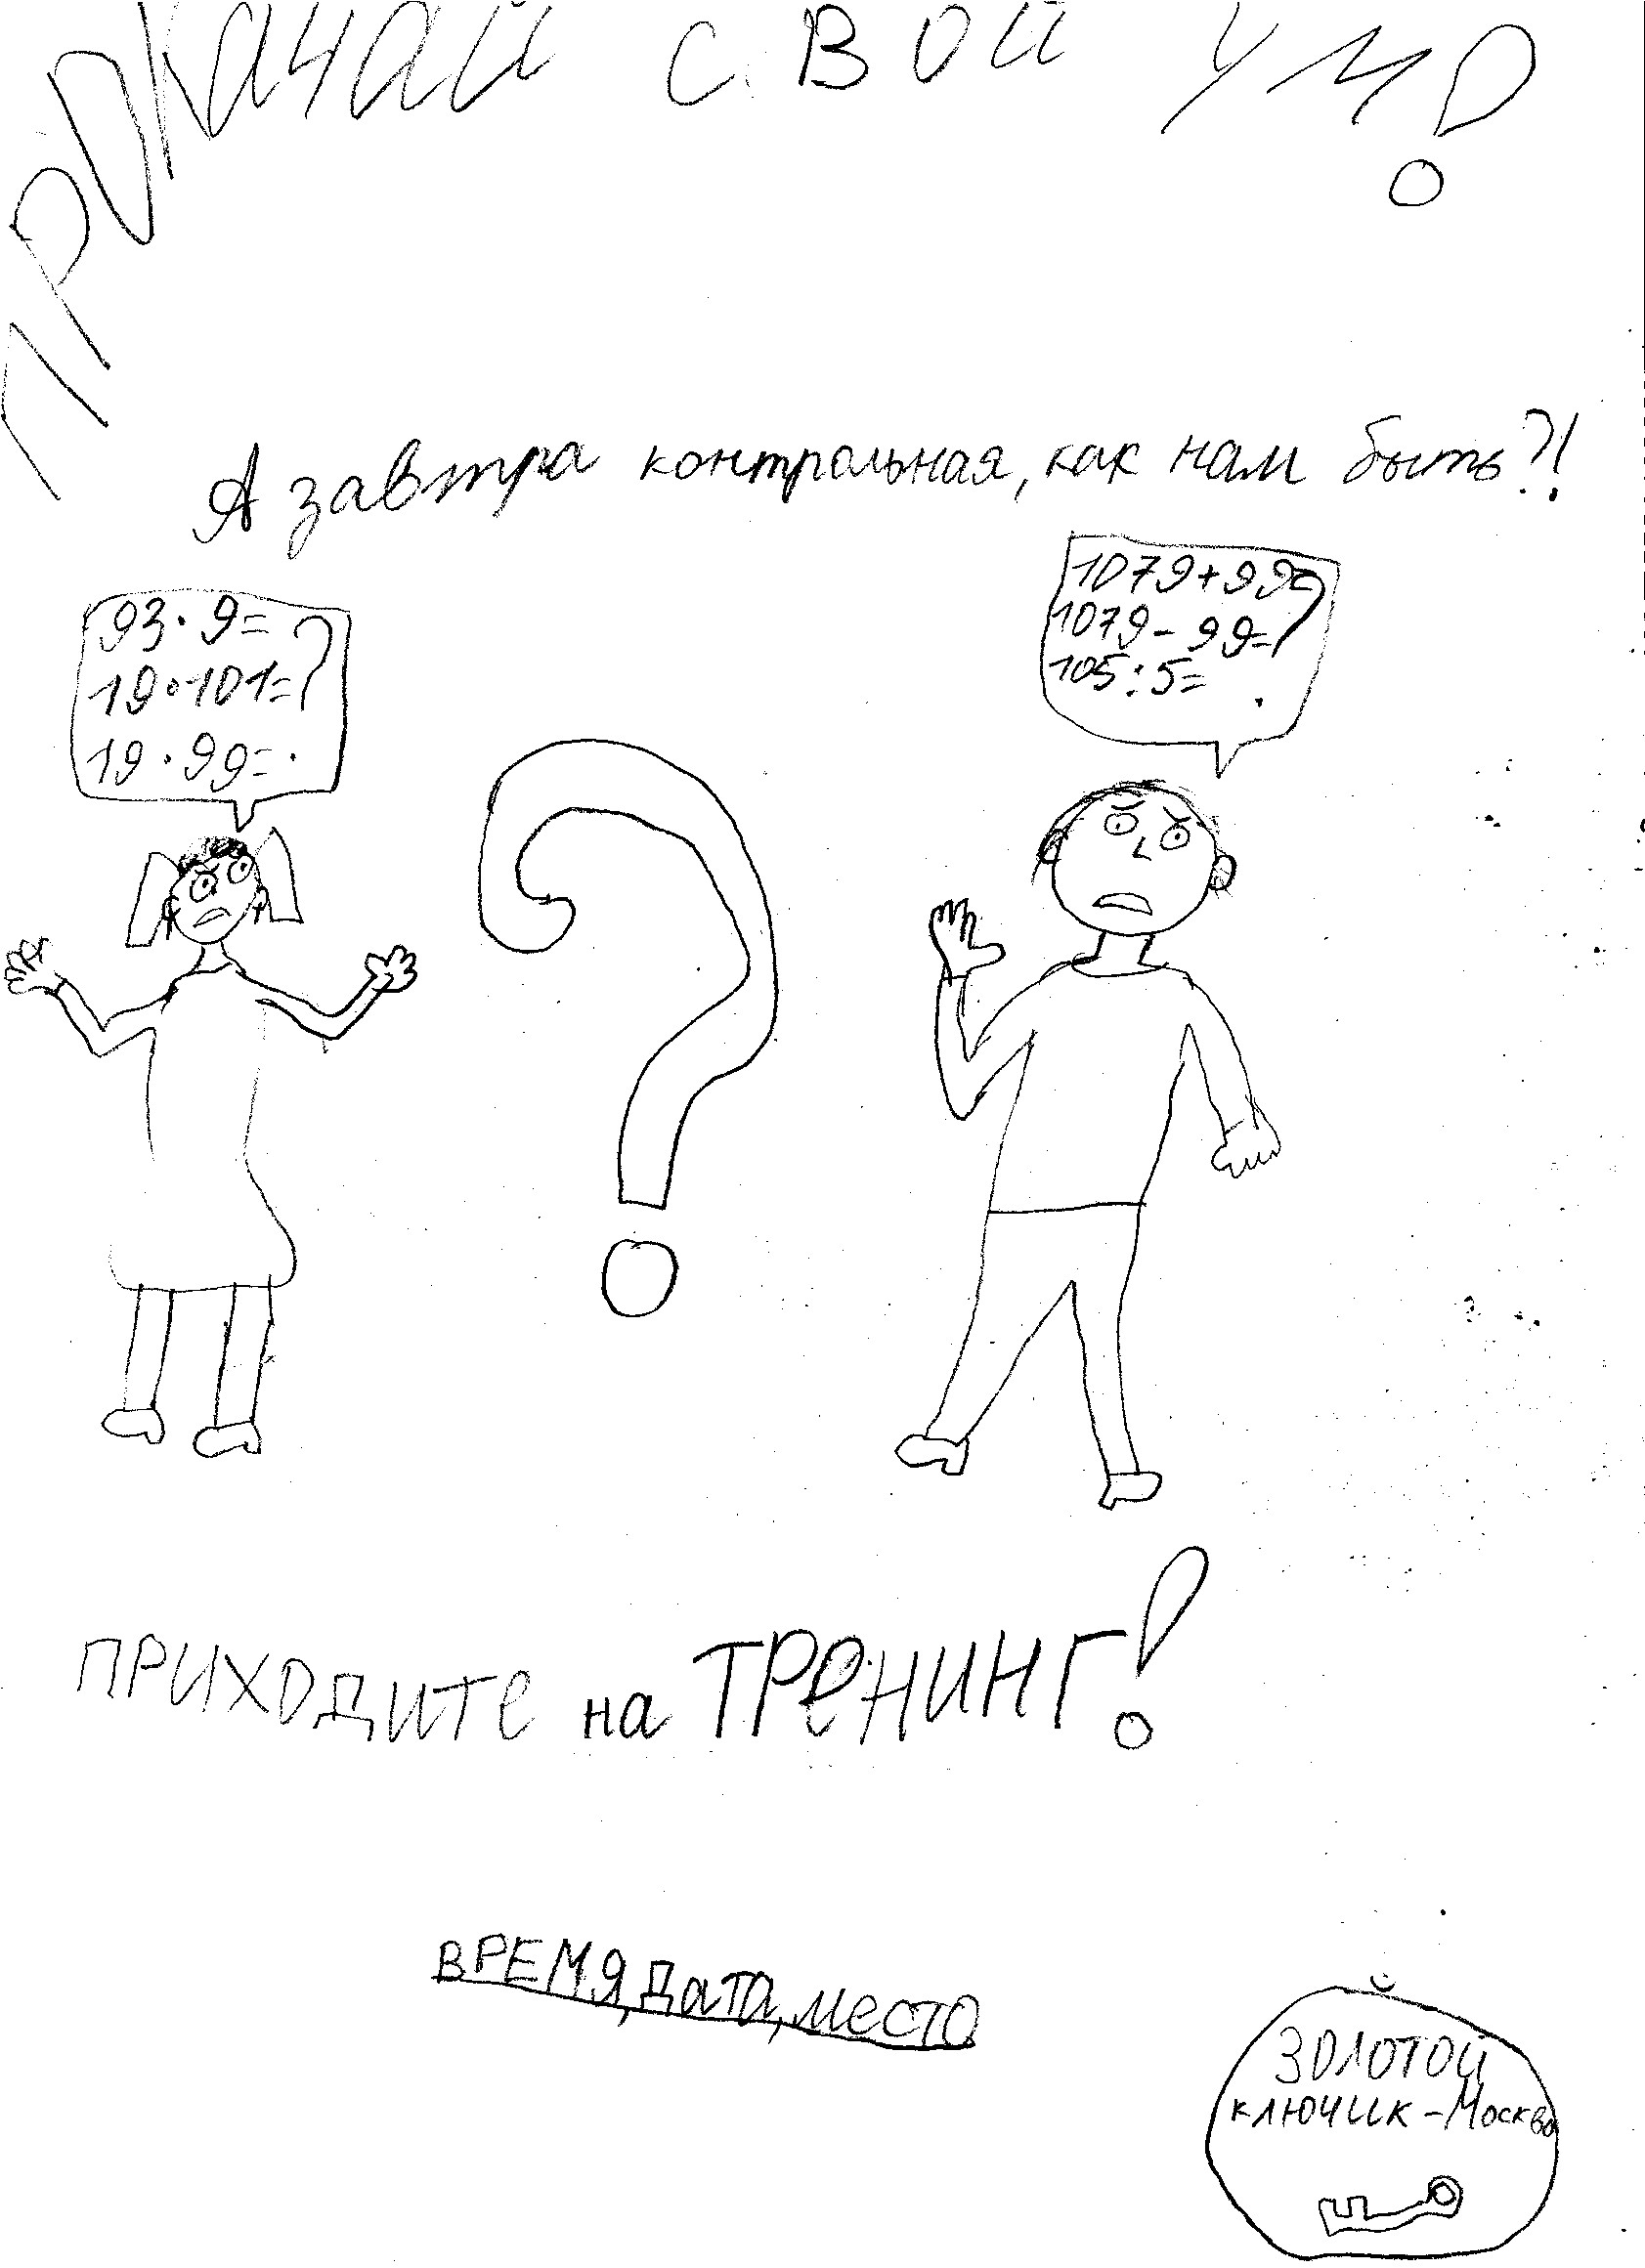 ПРОКАЧАЙ СВОЙ УМ!
А завтра контрольная, как нам быть?!
93·9=
19·101=?
19·99=
1079+99=
1079-99=?
105:5=
?
ПРИХОДИТЕ на ТРЕНИНГ!
ВРЕМЯ, дата, место
ЗОЛОТОЙ
ключик-Москва